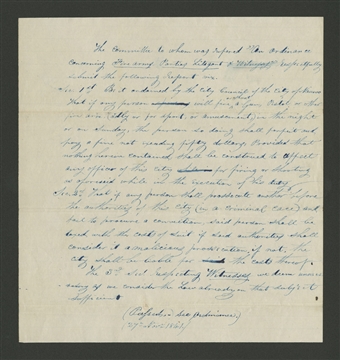 The Committee to whom was refered "An Ordinance
Concerning Fire arms Parties Litigant & Witnesses" respectfully
submit the following Report viz.
Sec. 1st Be it ordained by the City Council of the City of
That if any person shall fire a Gun Pistol or
fire arm idly or for sport or amusement in the night
or on Sunday, the person so doing shall forfeit and
pay a fine not exceeding fifty dollars. Provided that
nothing herein contained shall be construed to affect
any officer of this City for firing or shooting
or aforesaid while in the execution of his duty
Sec. 2d That if any person shall prosecute another before
the authorities of this City (in a criminal case) and
fail to procure a conviction, said person shall be
taxed with the costs of suit if said authorities shall
consider it a malicious prosecution, if not, the
City shall be liable for the costs thereof.
The 3d Sect respecting Witnesses, we deem
as we consider the Law already on that subject
sufficient
(Refused in see Ordinances)
27 Nov. 1841.